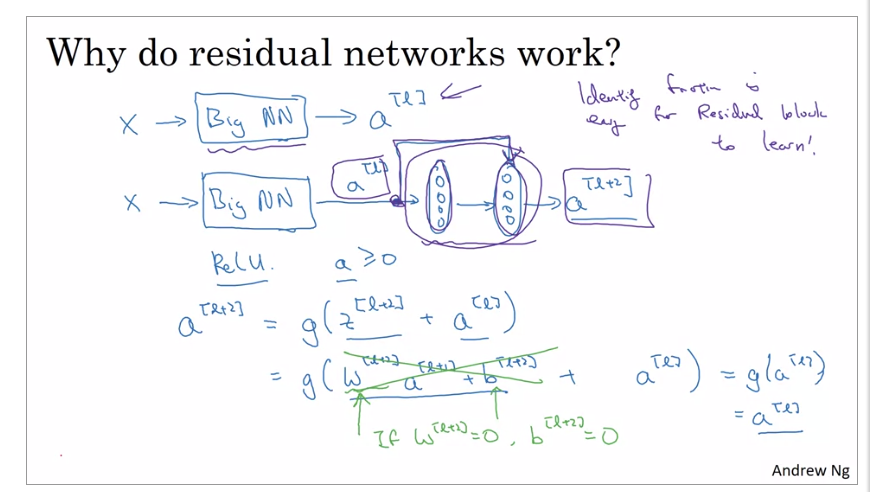 Why do residual networks work?
X → Big NN → a^[l]
Identity function is
easy for Residual block
to learn!
X → Big NN a^[l] → → → a^[l+2]
ReLU. a ≥ 0
a^[l+2] = g(z^[l+2] + a^[l])
= g(W^[l+2] a^[l+1] + b^[l+2] + a^[l]) = g(a^[l])
= a^[l]
If W^[l+2] = 0, b^[l+2] = 0
Andrew Ng